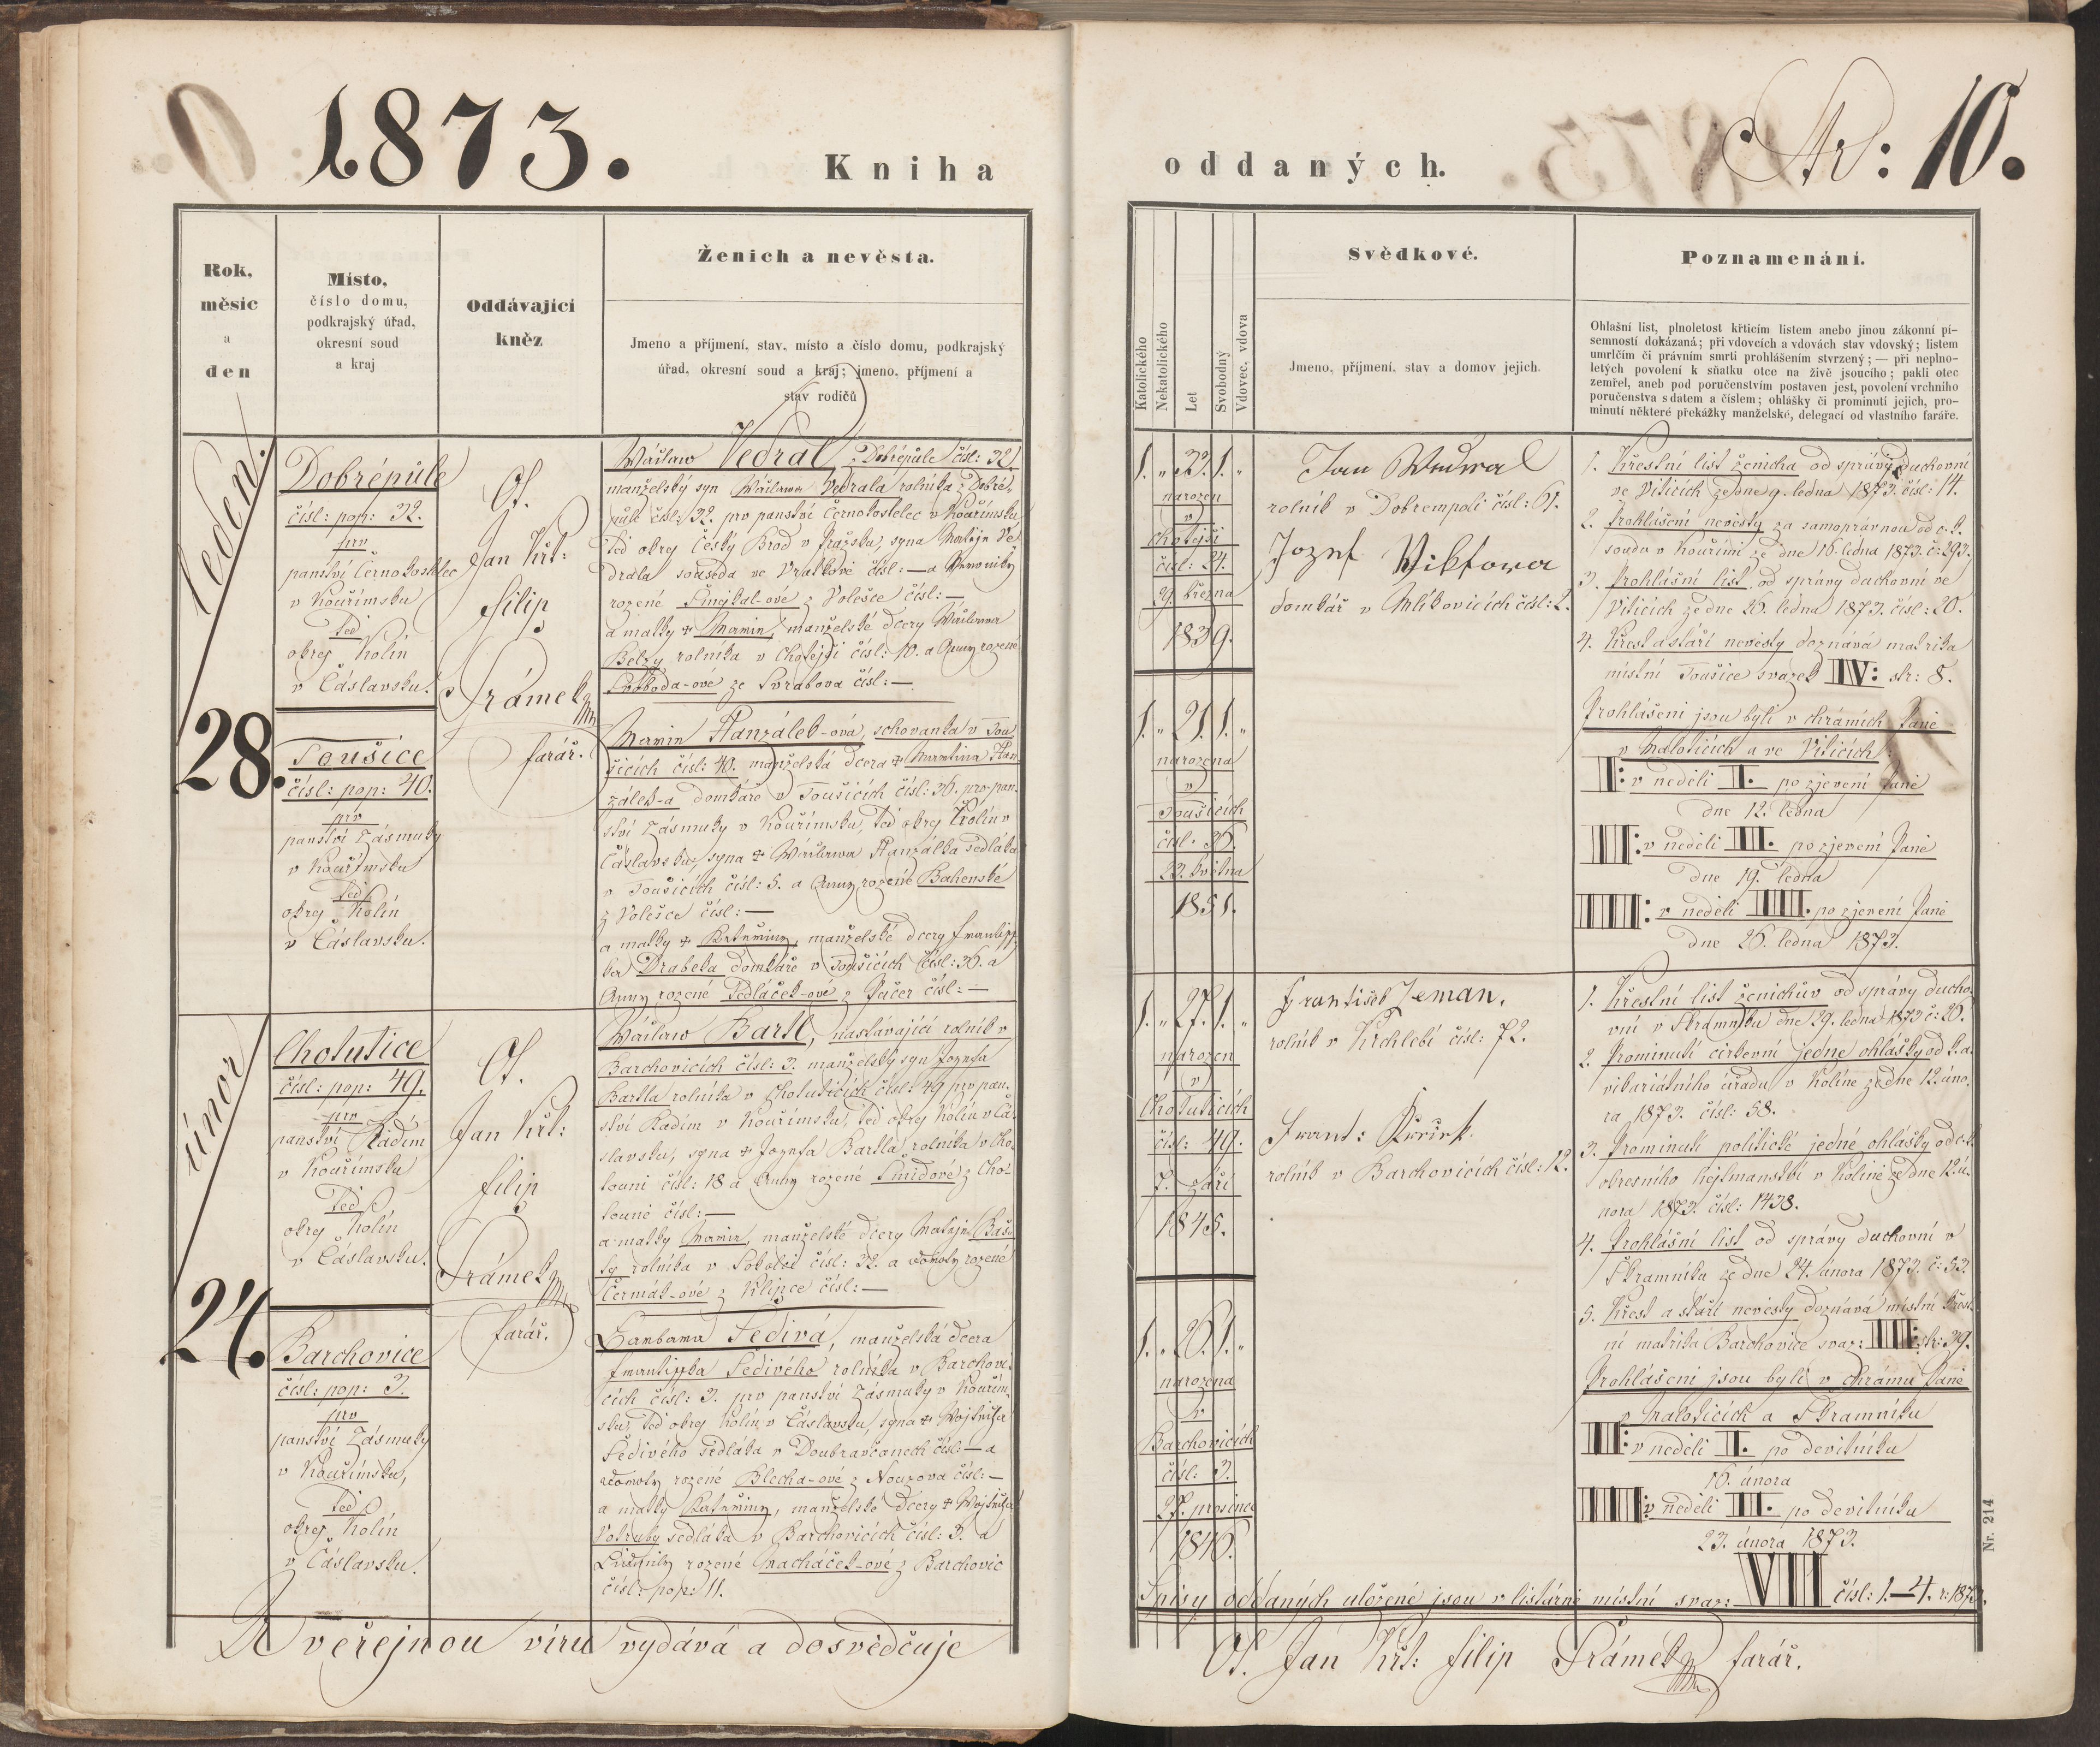 1873.
Kniha
Rok,
měsíc
a
den
Místo,
číslo domu,
podkrajský úřad,
okresní soud
a kraj
Oddávající
kněz
Ženich a nevěsta.
Jmeno a příjmení, stav, místo a číslo domu, podkrajský
úřad, okresní soud a kraj; jmeno, příjmení a
stav rodičů
leden.
28.
Dobrépůle
čísl: pop: 32.
prv
panství Černokostelec
v Kouřímsku
teď
okrej Kolín
v Čáslavsku.
Toušice
čísl: pop: 40.
prv
panství Zásmuky
v Kouřímsku
teď
okrej Kolín
v Čáslavsku.
Jan Křt:
Filip
Srámek
farář.
Wáclaw Vedral, z Dobrépůle čísl: 32.
manželský syn Wáclawa Vedrala rolníka z Dobré-
půle čísl: 32. prv panství Černokostelec v Kouřímsku
teď okrej Český Brod v Pražsku, syna Matěje Ve-
drala souseda ve Vrátkové čísl: — a Veroniky
rozené z Volešce čísl: —
a matky + manželské dcery Wáclawa
rolníka v Chotejši čísl: 10. a Anny rozené
Svoboda-ové ze Svrabova čísl: —
Hanzálek-ová, schovanka v Tou-
šicích čísl: 40. manželská dcera + Martina Han-
zálek-a domkáře v Toušicích čísl: 36. prv pan-
ství Zásmuky v Kouřímsku, teď okrej Kolín v
Čáslavsku, syna + Wáclawa Hanzálka sedláka
v Toušicích čísl: 5. a Anny rozené Bahenské
z Volešce čísl: —
a matky + Kateřiny, manželské dcery Františ-
ka Drabeka domkáře v Toušicích čísl: 36. a
Anny rozené Sedláček-ové z Pučer čísl: —
únor
24.
Chotutice
čísl: pop: 49.
prv
panství Radim
v Kouřimsku
teď
okrej Kolín
v Čáslavsku.
Barchovice
čísl: pop: 3.
prv
panství Zásmuky
v Kouřimsku,
teď
okrej Kolín
v Čáslavsku.
Jan Křt:
Filip
Srámek
farář.
Wáclaw Bartl, nastávající rolník v
Barchovicích čísl: 3. manželský syn Jozefa
Bartla rolníka v Chotuticích čísl: 49 prv pan-
ství Radim v Kouřímsku, teď okrej Kolín v Čá-
slavsku, syna + Jozefa Bartla rolníka v Cho-
touni čísl: 18 a Anny rozené Šmidové z Cho-
touně čísl: —
a matky manželské dcery Matěje
rolníka v Sokolči čísl: 32. a rozené
Čermák-ové z Klipce čísl: —
Barbara Šedivá, manželská dcera
Františka Šedivého rolníka v Barchovi-
cích čísl: 3. prv panství Zásmuky v Kouřím-
sku, teď okrej Kolín v Čáslavsku, syna + Wojtěcha
Šedivého sedláka v Doubravčanech čísl: — a
rozené Blecha-ové z Nouzova čísl: —
a matky Kateřiny, manželské dcery + Wojtěcha
Votruby sedláka v Barchovicích čísl: 3. a
Ludmily rozené Macháček-ové z Barchovic
čísl: pop: 11.
K veřejnou víru vydává a dosvědčuje
oddaných.
Str: 10.
Katolického
Nekatolického
Let
Svobodný
Vdovec, vdova
Svědkové.
Jmeno, příjmení, stav a domov jejich.
Poznamenání.
Ohlašní list, plnoletost křticím listem anebo jinou zákonní pí-
semností dokázaná; při vdovcích a vdovách stav vdovský; listem
umrlčím či právním smrti prohlášením stvrzený; — při neplno-
letých povolení k sňatku otce na živě jsoucího; pakli otec
zemřel, aneb pod poručenstvím postaven jest, povolení vrchního
poručenstva s datem a číslem; ohlášky či prominutí jejich, pro-
minutí některé překážky manželské, delegací od vlastního faráře.
1. „ 33. 1. „
narozen
v
Chotejši
čísl: 24.
9. března
1839.
1. „ 21. 1. „
narozena
v
Toušicích
čísl. 36.
23. května
1851.
Jan Wedral
rolník v Dobrempoli čísl: 61.
Jozef Viktora
domkář v Mlékovicích čísl: 2.
1. Křestní list ženicha od správy duchovní
ve Viticích ze dne 9. ledna 1873. čísl: 14.
2. Prohlášení nevěsty za samoprávnou od c. k.
soudu v Kouřimi ze dne 16. ledna 1873. č: 293.
3. Prohlášní list od správy duchovní ve
Viticích ze dne 26. ledna 1873. čísl: 20.
4. Křest a stáří nevěsty doznává matrika
místní Toušice svazek IV: str: 8.
Prohlášeni jsou byli v chrámích Páně
v Maloticích a ve Viticích:
I: v neděli I. po zjevení Páně
dne 12. ledna
II: v neděli II. po zjevení Páně
dne 19. ledna
III: v neděli III. po zjevení Páně
dne 26. ledna 1873.
1. „ 27. 1. „
narozen
v
Chotuticích
čísl: 49.
7. září
1845.
1. „ 26. 1. „
narozena
v
Barchovicích
čísl: 3.
27. prosince
1846.
František Zeman.
rolník v Krchlebí čísl: 72.
Frant:
rolník v Barchovicích čísl: 12.
1. Křestní list ženichův od správy ducho-
vní v Skramníku dne 29. ledna 1873 č: 26.
2. Prominutí církevní jedné ohlášky od k. a.
vikariátního úřadu v Kolíne ze dne 12. úno-
ra 1873. čísl: 58.
3. Prominutí politické jedné ohlášky od c. k.
okresního hejtmanství v Kolíně ze dne 12. ú-
nora 1873. čísl: 1438.
4. Prohlášní list od správy duchovní v
Skramníku ze dne 24. února 1873. č: 53.
5. Křest a stáří nevěsty doznává místní křest-
ní matrika Barchovice svaz: III: str: 29.
Prohlášeni jsou byli v chrámu Páně
v Maloticích a Skramníku
I: v neděli II. po devítníku
16. února
II: v neděli III. po devítníku
23. února 1873.
Spisy oddaných uložené jsou v listárně místní svaz: VIII čísl: 1—4. r: 1873.
Jan Křt: Filip Srámek farář.
Nr. 214